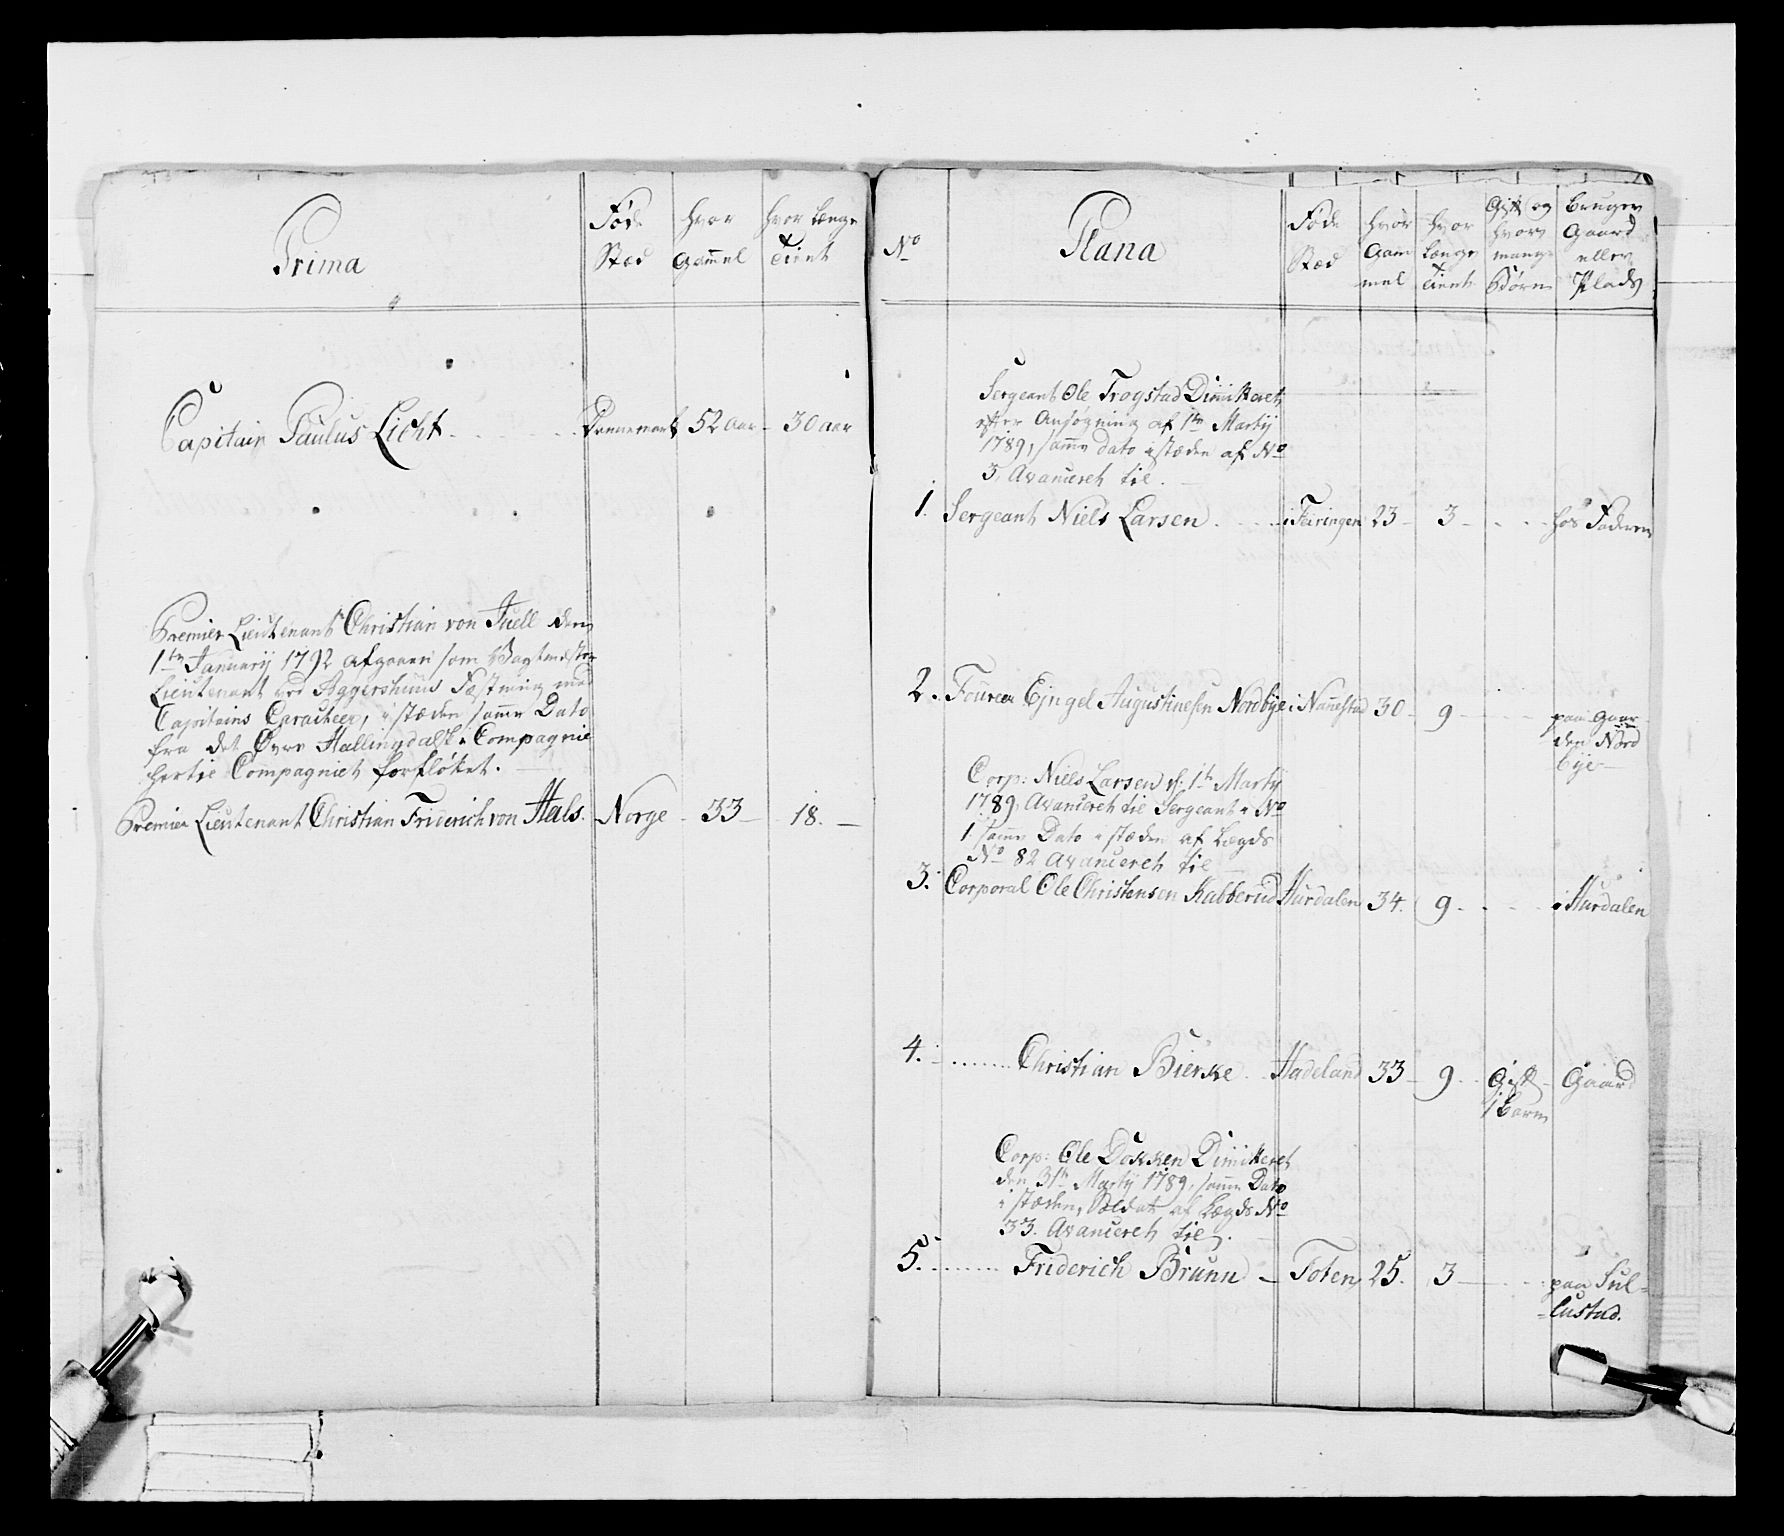 Prima
Føde Stæd
hvor Gammel
hvor Længe Tient
Capitain Paulus Licht
Dannemark 52 aar 30 aar
Premier Lieutenant Christian von Juell den
1te Januarij 1792 afgaaen som Vagtmester
Lieutenant ved Aggershuus Fæstning med
Capitains Caracteer, i stæden samme Dato
fra det Øvre Hallingdalske Compagnie
hertil Compagniet forfløttet.
Premier Lieutenant Christian Friderich von Hals. Norge 33 18.
No
Plana
Føde Stæd
hvor Gammel
hvor Længe Tient
Gift og hvor mange Børn
bruger Gaard eller Plads
Sergeant Ole Trogstad Dimitteret
efter Ansøgning af 1te Martij
1789, samme Dato i stæden af No
3, Avanceret til.
1. Sergeant Niels Larsen i Feiringen 23 3 hos Faderen
2. Foureer Engel Augustinesen Nordbye i Nannestad 30 9
paa Gaar
den Nord
bye
Corp: Niels Larsen d: 1te Martij
1789, Avanceret til Sergeant No
1. samme Dato i stæden af Lægds
No 82 Avanceret til
3. Corporal Ole Christensen Kabberud Hurdalen 34. 9. i Hurdalen
4. Christian Bierke Hadeland 33 9 Gift Gaard
1 barn
Corp: Ole Dokken Dimitteret
den 31te Martij 1789, samme Dato
i stæden, Soldat af Lægds No
33. Avanceret til.
5. Friderich Brunn Toten 25. 3
paa Sul=
=lustad.